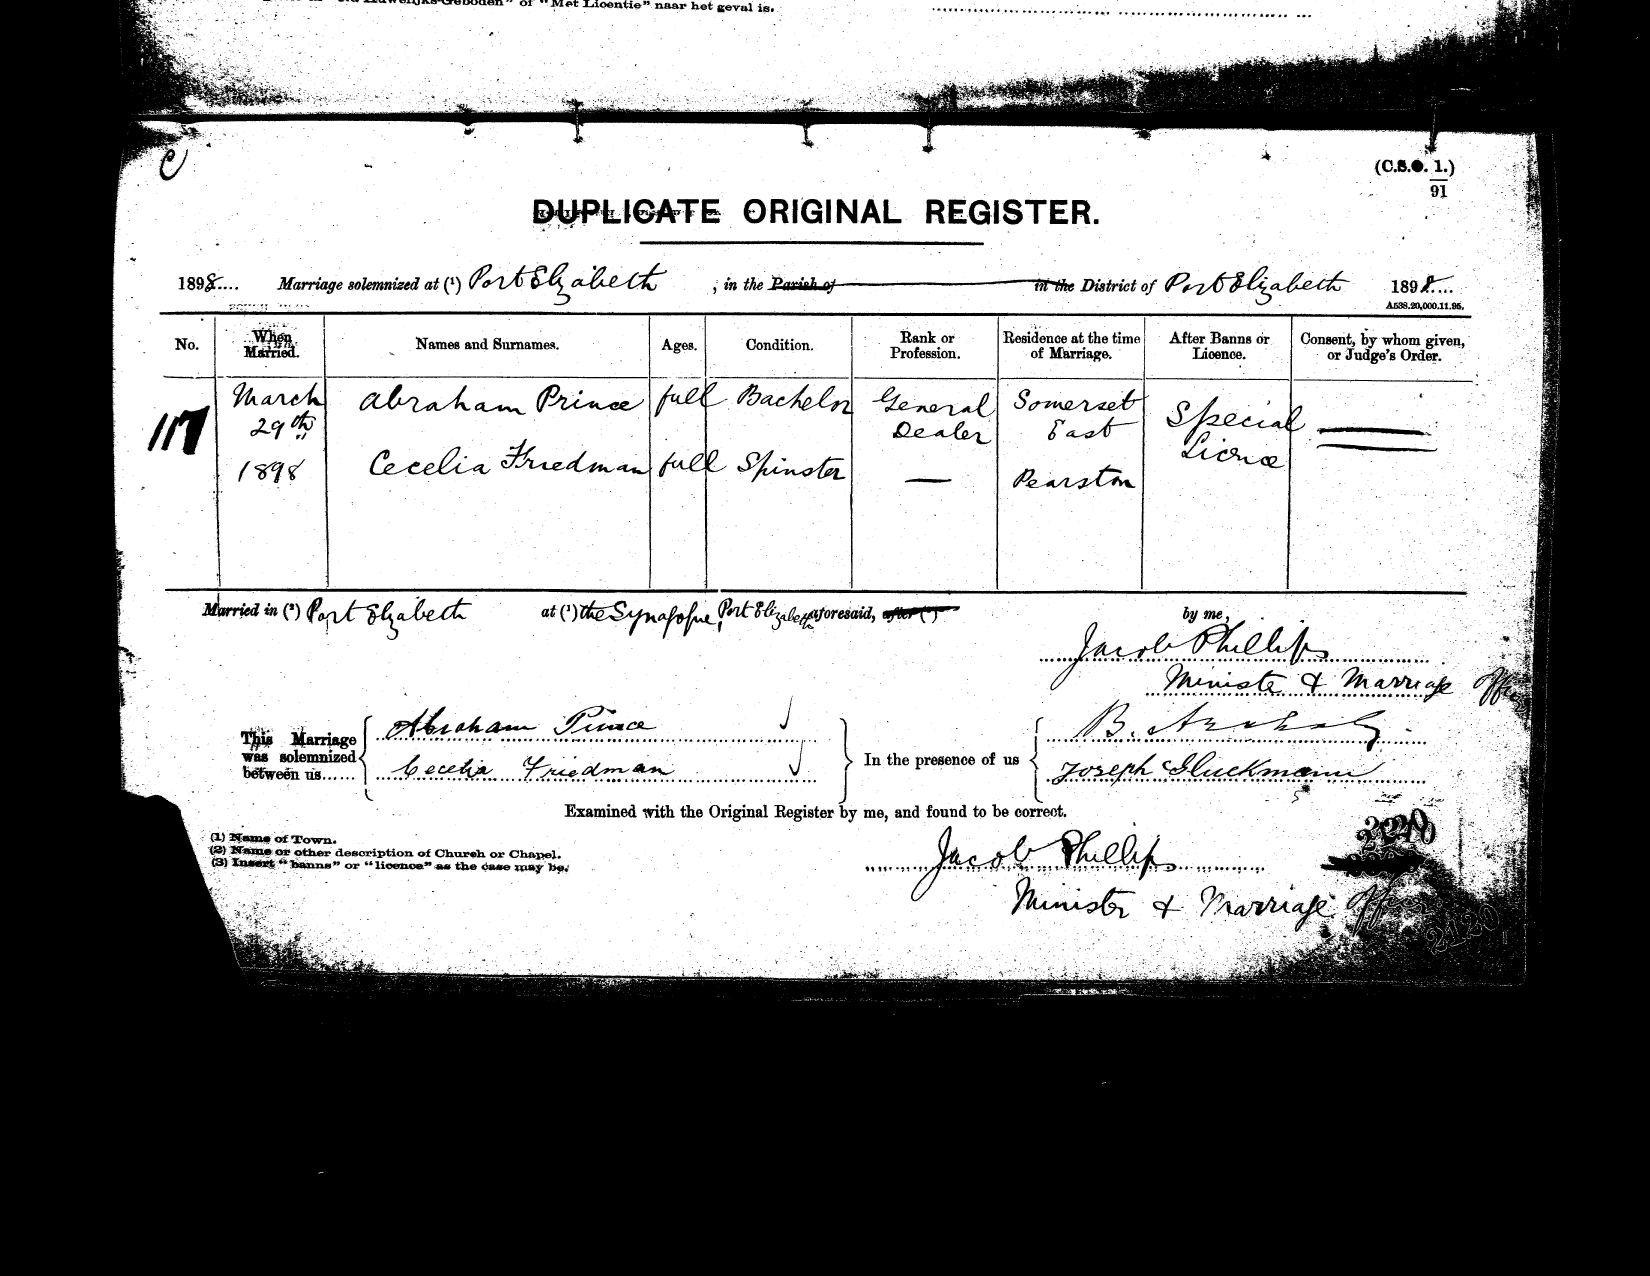 "Met Licentie" naar het geval is.
C
(C.S.O. 1.)
91
DUPLICATE ORIGINAL REGISTER.
1898.... Marriage solemnized at (¹) Port Elizabeth , in the Parish of in the District of Port Elizabeth 1898....
A538.20,000.11.95.
No. When Married. Names and Surnames. Ages. Condition. Rank or Profession. Residence at the time of Marriage. After Banns or Licence. Consent, by whom given, or Judge's Order.
117 March 29th 1898 Abraham Prince full Bachelor General Dealer Somerset East Special Licence
Cecelia Friedman full Spinster — Pearston
Married in (²) Port Elizabeth at (¹) the Synagogue, Port Elizabeth aforesaid, after (³) by me,
Jacob Phillips
Minister & Marriage Officer
This Marriage was solemnized between us...... Abraham Prince
Cecelia Friedman
In the presence of us B.
Joseph Gluckmann
Examined with the Original Register by me, and found to be correct.
(1) Name of Town.
(2) Name or other description of Church or Chapel.
(3) Insert "banns" or "licence" as the case may be.
Jacob Phillips
Minister & Marriage Officer
2120